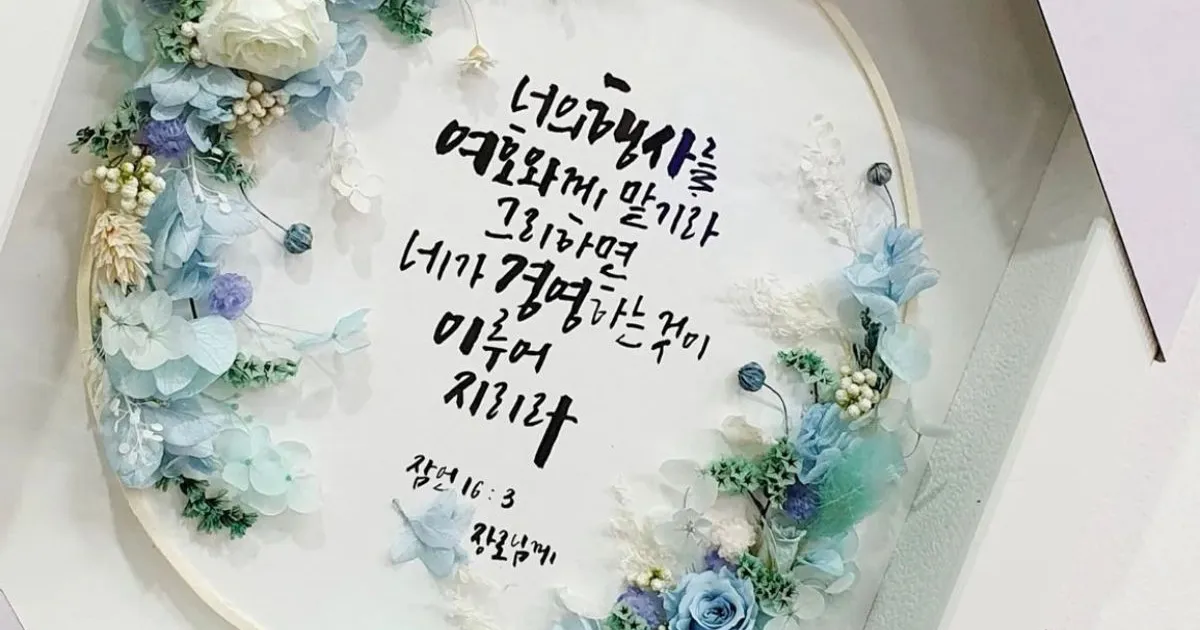 너의 행사를
여호와께 맡기라
그리하면
네가 경영하는 것이
이루어
지리라
잠언 16:3
장로님께